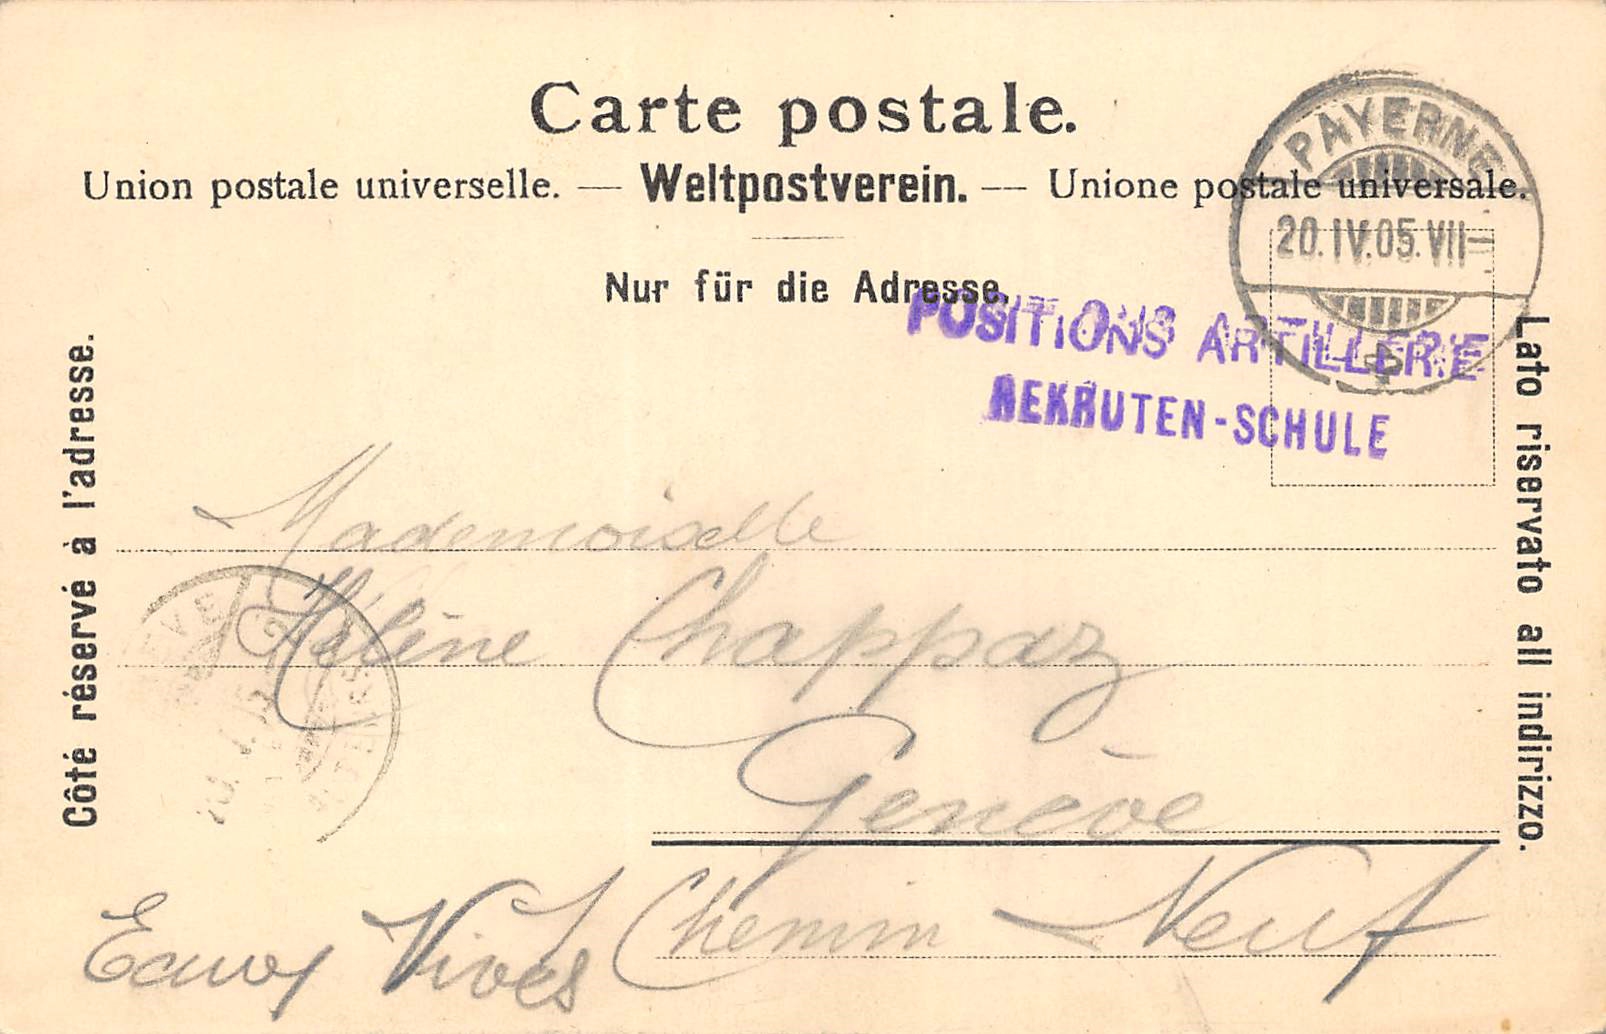 Carte postale.
Union postale universelle. — Weltpostverein. — Unione postale universale.
Nur für die Adresse.
PAYERNE
20.IV.05.VII
POSITIONS ARTILLERIE
REKRUTEN-SCHULE
Côté réservé à l'adresse.
Lato riservato all indirizzo.
Mademoiselle
Hélène Chappaz
Genève
Chemin Neuf
Eaux Vives